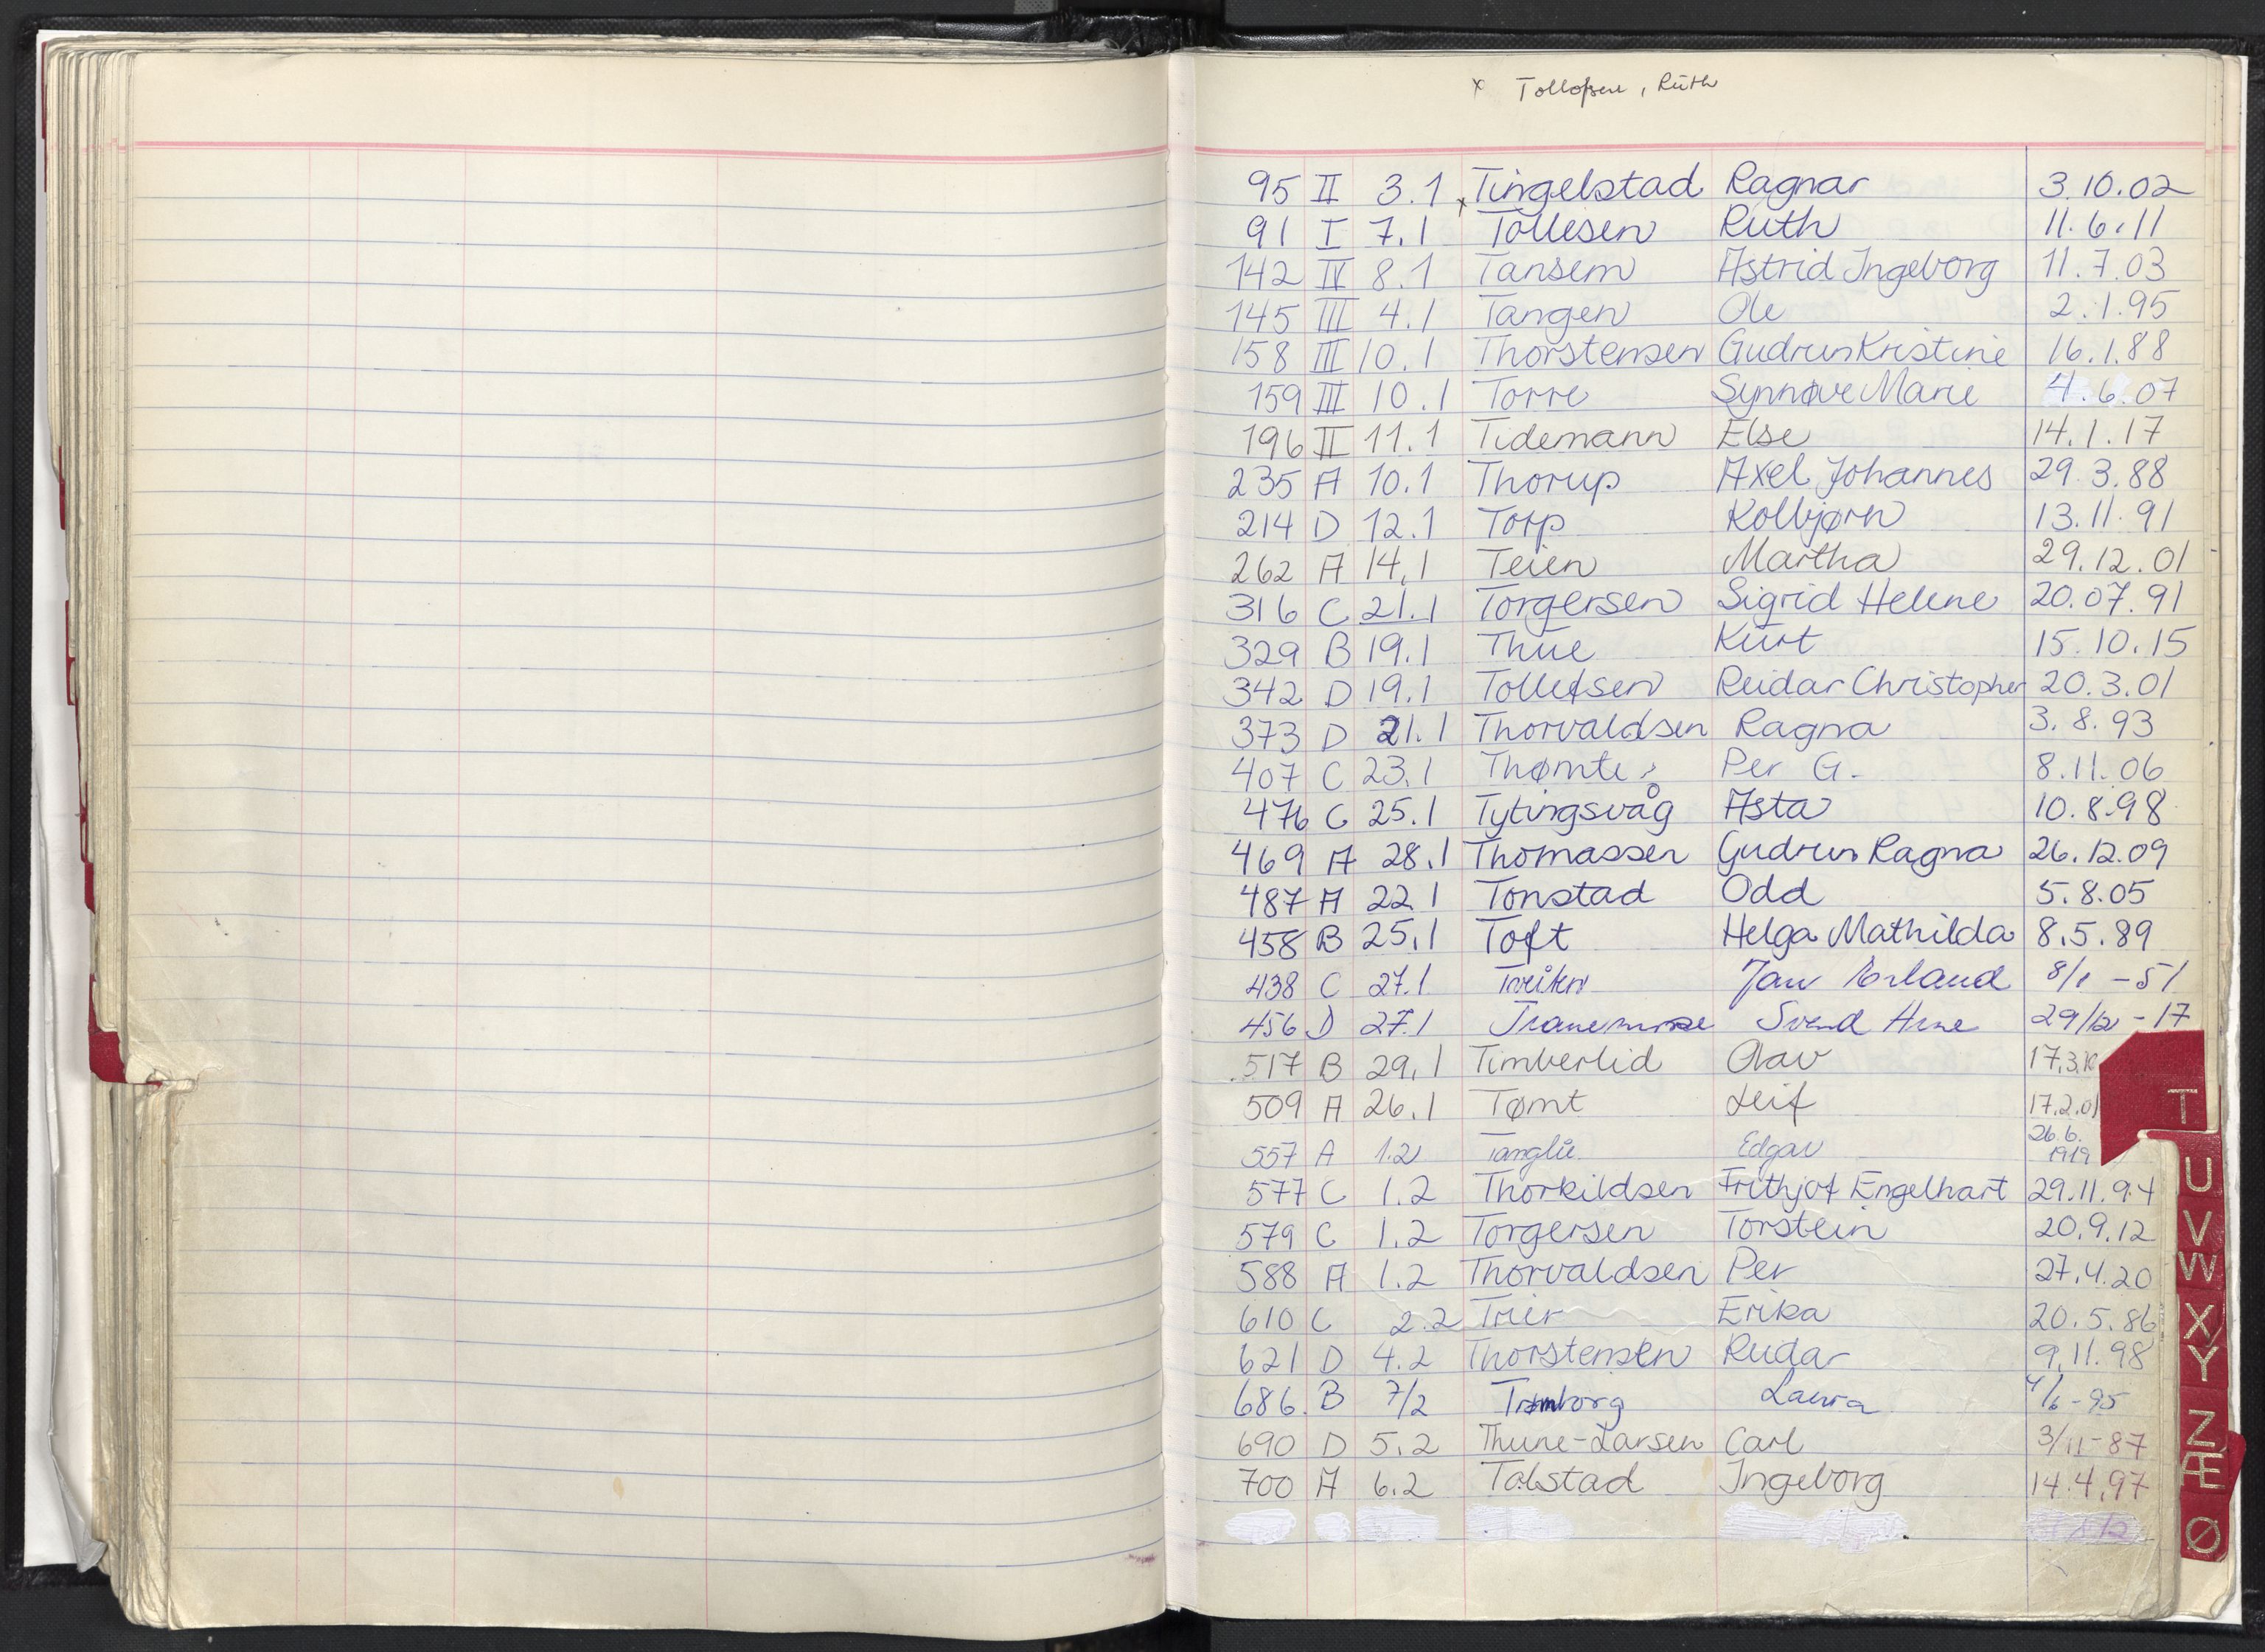 x Tollofsen, Ruth
95 II 3.1 Tingelstad Ragnar 3.10.02
91 I 7.1 x Tollesen Ruth 11.6.11
142 IV 8.1 Tansem Astrid Ingeborg 11.7.03
145 III 4.1 Tangen Ole 2.1.95
158 III 10.1 Thorstensen Gudrun Kristine 16.1.88
159 III 10.1 Torre Synnøve Marie 4.6.07
196 II 11.1 Tidemann Else 14.1.17
235 A 10.1 Thorup Axel Johannes 29.3.88
214 D 12.1 Torp Kolbjørn 13.11.91
262 A 14.1 Teien Martha 29.12.01
316 C 21.1 Torgersen Sigrid Helene 20.07.91
329 B 19.1 Thue Kurt 15.10.15
342 D 19.1 Tollefsen Reidar Christopher 20.3.01
373 D 21.1 Thorvaldsen Ragna 3.8.93
407 C 23.1 Thømte Per G. 8.11.06
476 C 25.1 Tytingsvåg Asta 10.8.98
469 A 28.1 Thomassen Gudrun Ragna 26.12.09
487 A 22.1 Tonstad Odd 5.8.05
458 B 25.1 Toft Helga Mathilda 8.5.89
438 C 27.1 Jan Erland 8/1 - 51
456 D 27.1 Svend Arne 29/12 - 17
517 B 29.1 Timberlid Olav 17.3.
509 A 26.1 Tømt Leif 17.2.01
557 A 1.2 Tanglie Edgar 26.6.1919
577 C 1.2 Thorkildsen Frithjof Engelhart 29.11.94
579 C 1.2 Torgersen Torstein 20.9.12
588 A 1.2 Thorvaldsen Per 27.4.20
610 C 2.2 Trier Erika 20.5.86
621 D 4.2 Thorstensen Reidar 9.11.98
686. B 7/2 Tromborg Laura 4/6 - 95
690 D 5.2 Thune-Larsen Carl 3/11-87
700 A 6.2 Talstad Ingeborg 14.4.97
T
U
V
W
X
Y
Z
Æ
Ø